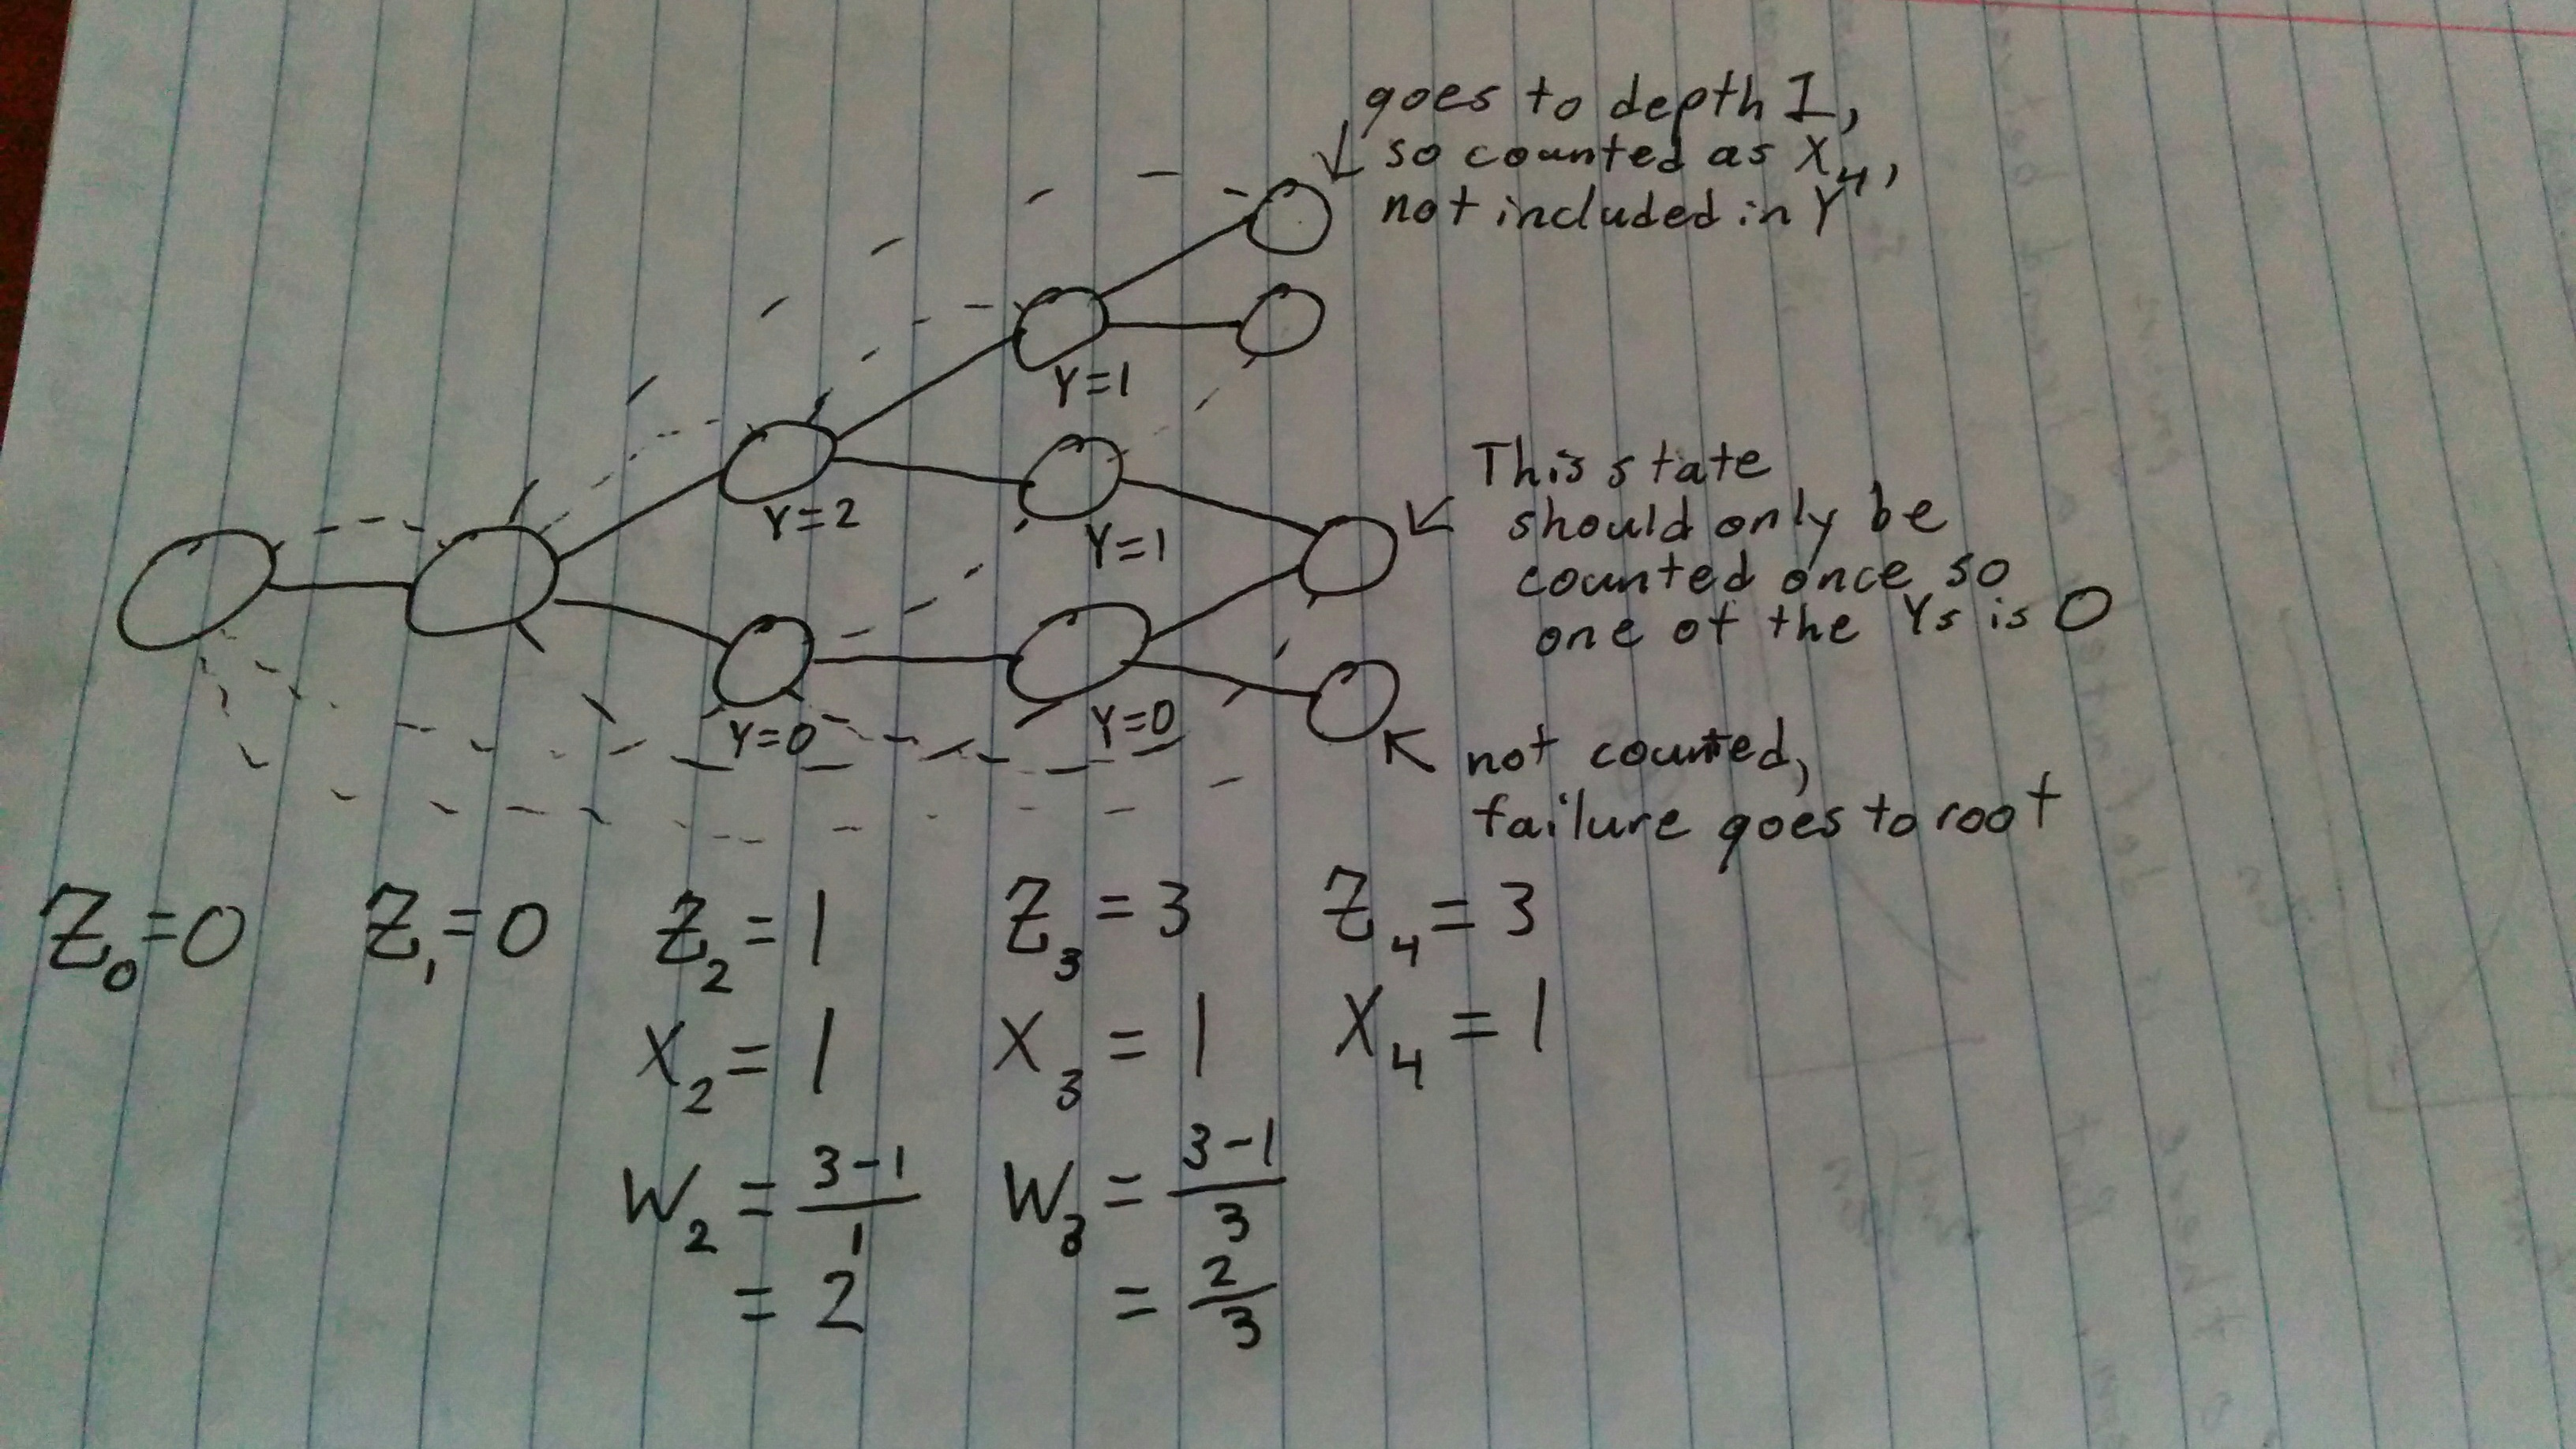 goes to depth 1,
so counted as X₄,
not included in Y
Y=1
This state
should only be
counted once so
one of the Ys is 0
Y=2
Y=1
Y=0
Y=0
not counted,
failure goes to root
Z₀=0 Z₁=0 Z₂=1 Z₃=3 Z₄=3
X₂=1 X₃=1 X₄=1
W₂ = 3-1/1 W₃ = 3-1/3
= 2 = 2/3